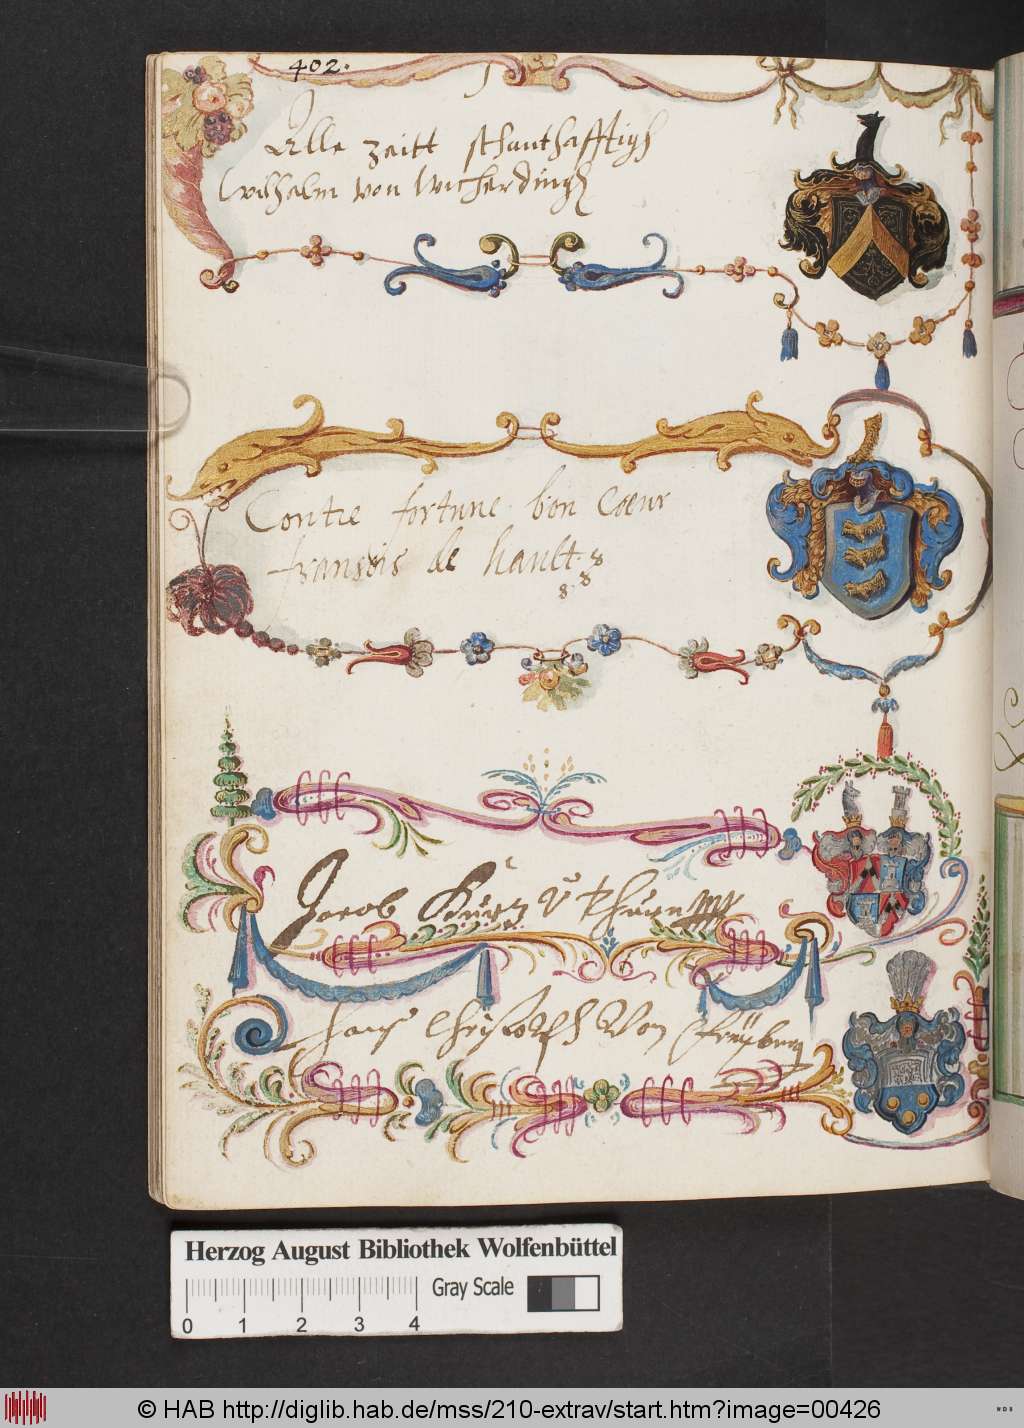 402.
Alle zeitt standthafftigh
Wilhelm von Wicherdingh
Contre fortune bon Cœur
fransois de hault. 8
8. 8
Jacob Kurtz V Thurn
Hans Christoph Von Freÿberg
Herzog August Bibliothek Wolfenbüttel
Gray Scale
0 1 2 3 4
© HAB http://diglib.hab.de/mss/210-extrav/start.htm?image=00426